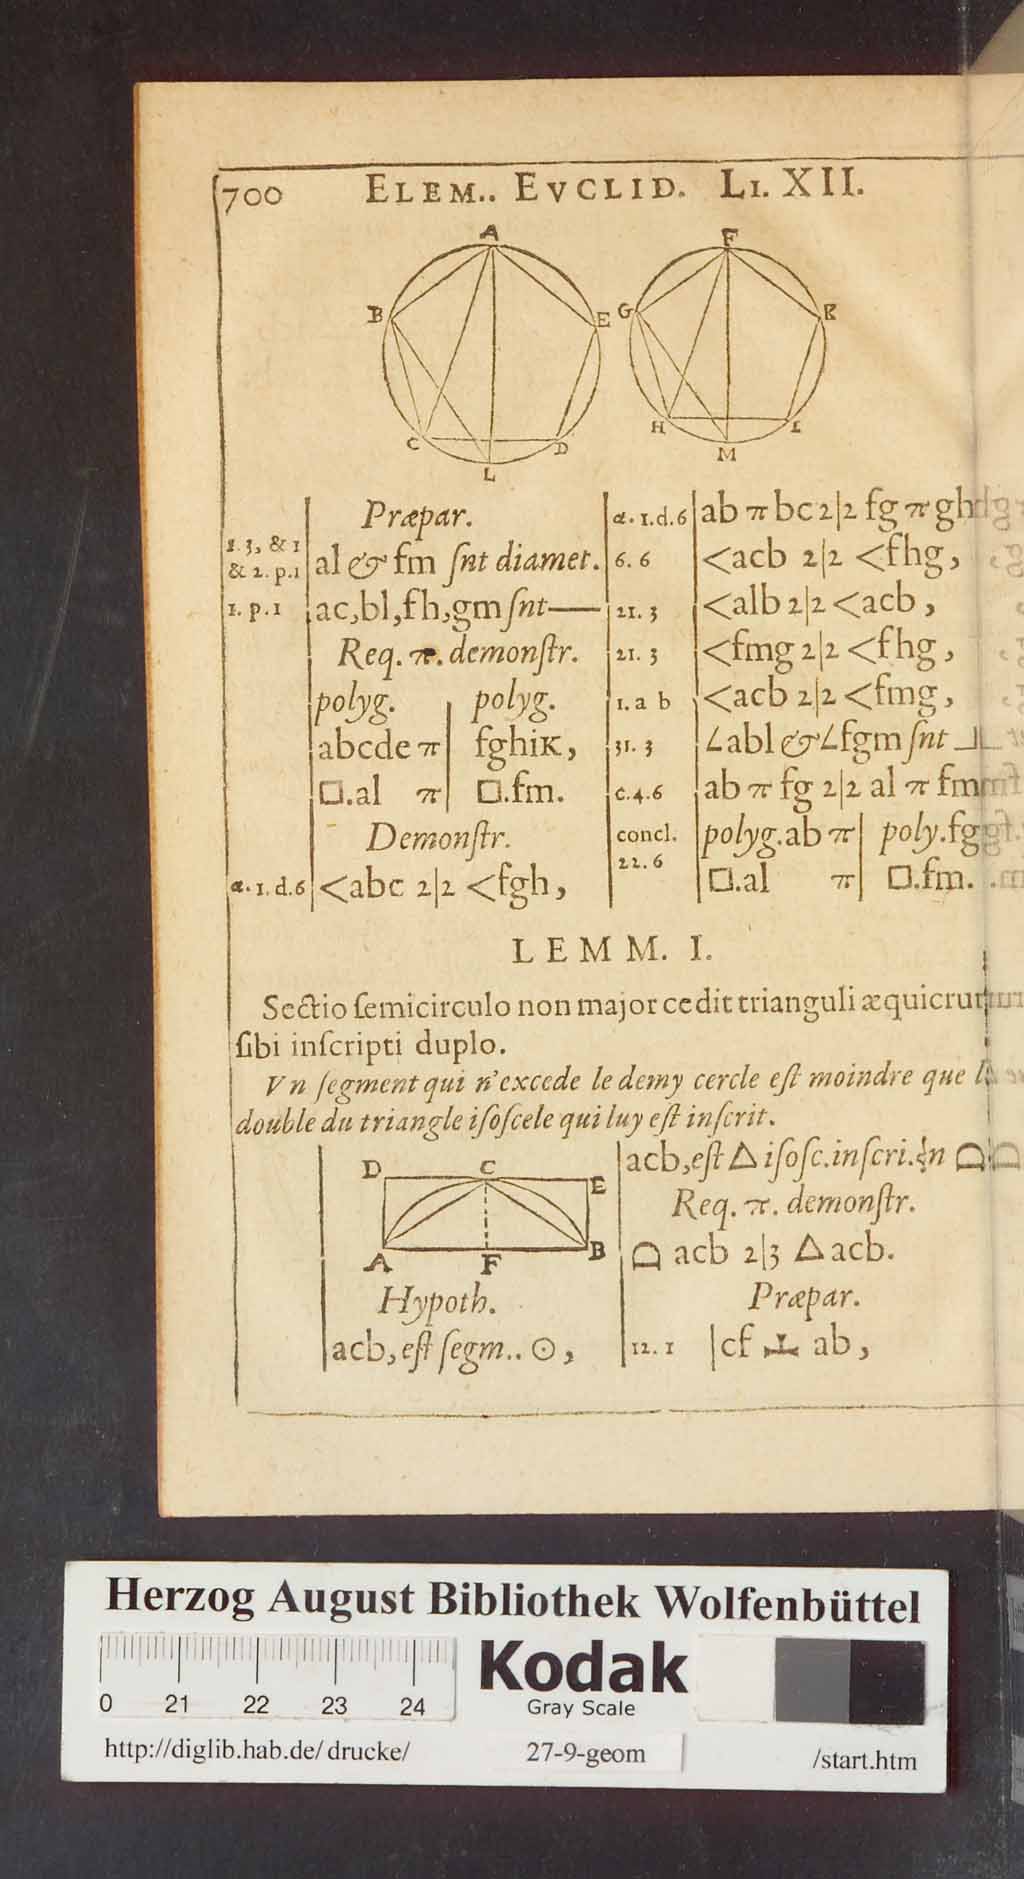 700 ELEM.. EVCLID. LI. XII.
A
B
E
C
D
L
F
G
K
H
I
M
Præpar.
1. 3, & 1
& 2. p.1
al & fm ſnt diamet.
1. p.1 ac,bl,fh,gm ſnt—
Req. π. demonſtr.
polyg. | polyg.
abcde π | fghiK,
□.al π | □.fm.
Demonſtr.
α. 1.d.6 <abc 2|2 <fgh,
α. 1.d.6 ab π bc 2|2 fg π gh
6. 6 <acb 2|2 <fhg,
21. 3 <alb 2|2 <acb,
21. 3 <fmg 2|2 <fhg,
1. a b <acb 2|2 <fmg,
31. 3 ∠abl & ∠fgm ſnt ⅃
c.4.6 ab π fg 2|2 al π fm
concl. polyg.ab π | poly.fg
22.6 □.al π | □.fm.
LEMM. I.
Sectio ſemicirculo non major cedit trianguli æquicrur
ſibi inſcripti duplo.
Vn ſegment qui n'excede le demy cercle eſt moindre que l
double du triangle iſoſcele qui luy eſt inſcrit.
D
C
E
A
F
B
Hypoth.
acb, eſt ſegm.. ⊙,
acb, eſt △ iſoſc.inſcri. ⌓
Req. π. demonſtr.
⌓ acb 2|3 △ acb.
Præpar.
12. 1 | cf ⊥ ab,
Herzog August Bibliothek Wolfenbüttel
0 21 22 23 24
Kodak
Gray Scale
http://diglib.hab.de/drucke/ 27-9-geom /start.htm